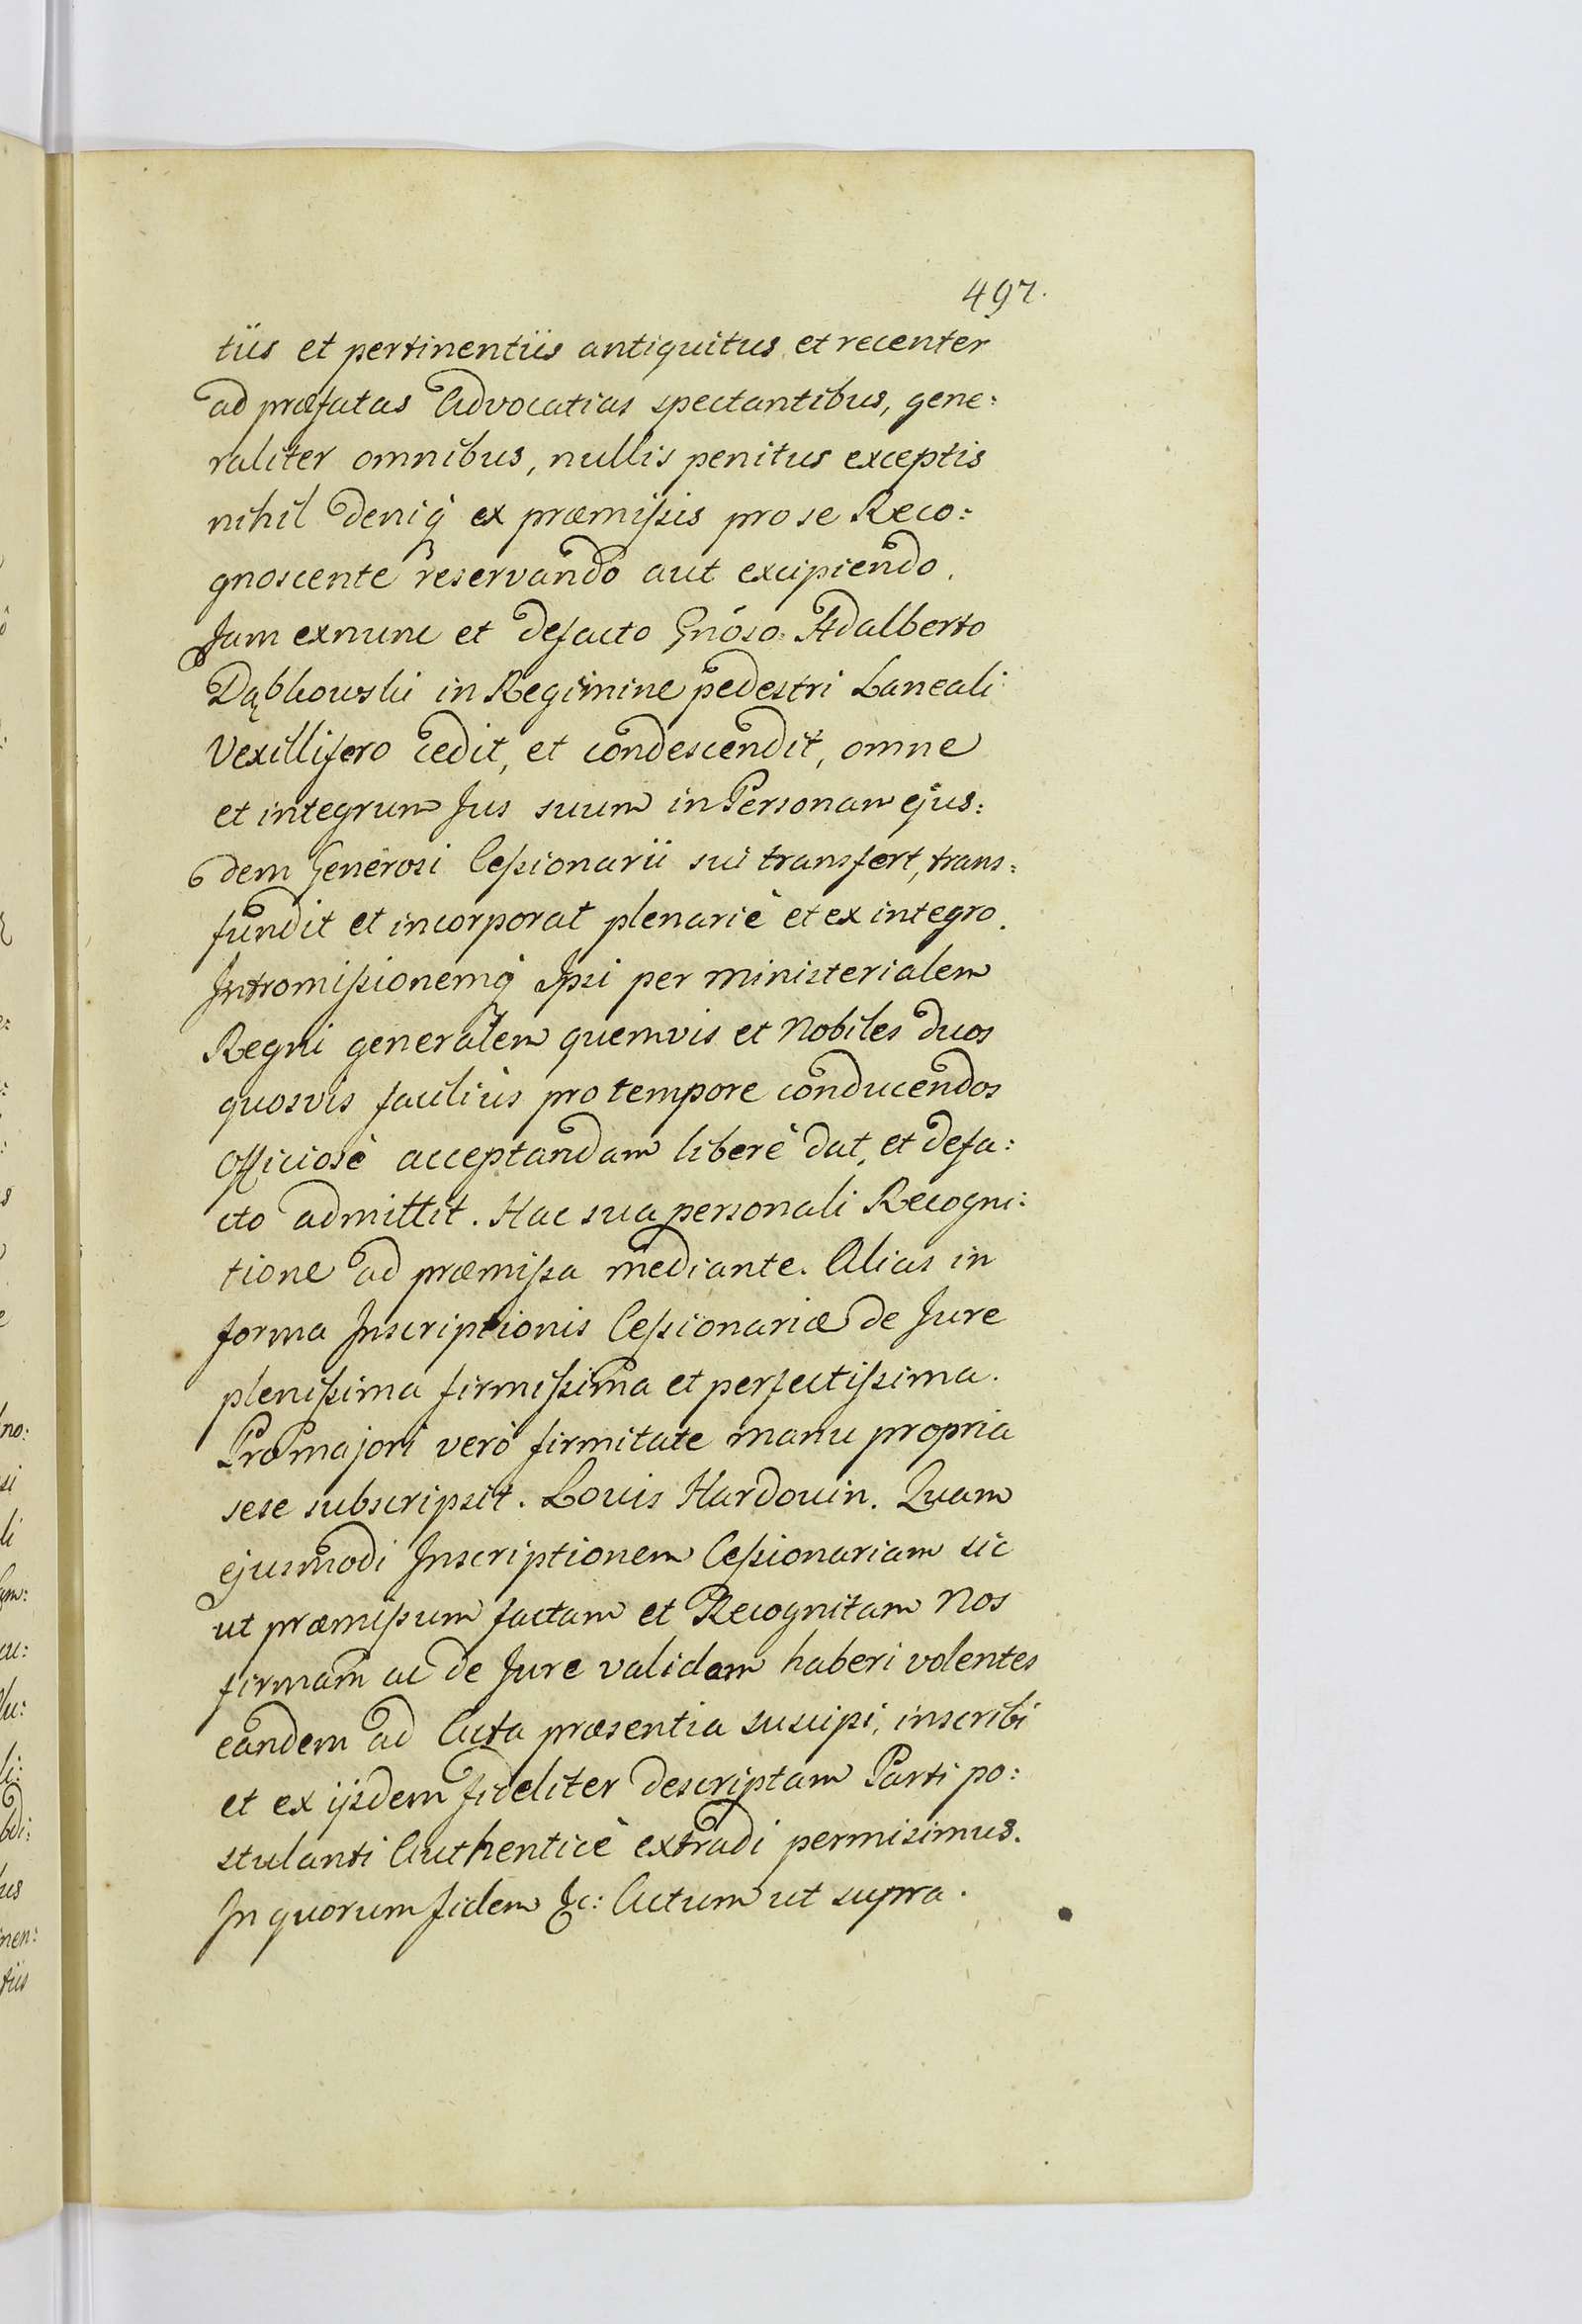 497.
tiis et pertinentiis antiquitus et recenter
ad præfatas Advocatias spectantibus, gene:
raliter omnibus, nullis penitus exceptis
nihil deniq́ ex præmißis pro se Reco:
gnoscente reservando aut excipiendo.
Jam exnunc et defacto Gnoso Adalberto
Dąbkowski in Regimine pedestri Laneali
Vexillifero cedit, et condescendit, omne
et integrum Jus suum in Personam ejus:
dem Generosi Ceßionarii sui transfert, trans:
fundit et incorporat plenariè et ex integro.
Intromißionemq́ Ipsi per ministerialem
Regni generalem quemvis et Nobiles duos
quosvis faciliùs pro tempore conducendos
Officiosè acceptandam liberè dat, et defa:
cto admittit. Hac sua personali Recogni:
tione ad præmißa mediante. Alias in
forma Inscriptionis Ceßionariæ de Jure
plenißima firmißima et perfectißima.
Pro majori verò firmitate manu propria
sese subscripsit. Louis Hardouin. Quam
ejusmodi Inscriptionem Ceßionariam sic
ut præmißum factam et Recognitam Nos
firmam ac de Jure validam haberi volentes
eandem ad Acta præsentia suscipi, inscribi
et ex ijsdem fideliter descriptam Parti po:
stulanti Authenticè extradi permisimus.
In quorum fidem &c: Actum ut supra.